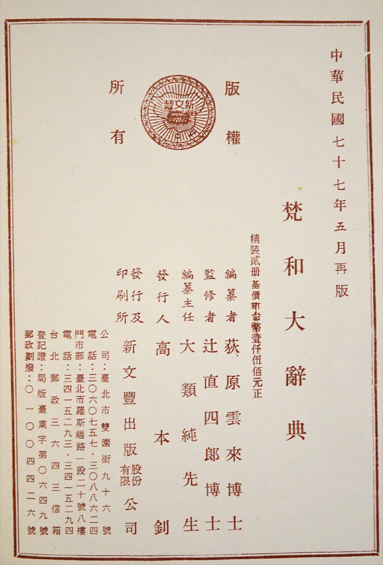 中華民國七十七年五月再版
版權
所有
新文豐
梵和大辭典
精裝貳册基價新台幣壹仟伍佰元正
編纂者 荻原雲來博士
監修者 辻直四郎博士
編纂主任 大類純先生
發行人 高本釗
發行及印刷所 新文豐出版股份有限公司
公司：臺北市雙園街九十六號
電話：三〇六〇七五七・三〇八八六二四
門市部：臺北市羅斯福路一段二十號八樓
電話：三四一五二九三・三四一五二九四
台北郵政三六四三信箱
登記證：局版臺業字第〇六四九號
郵政劃撥：〇一〇〇四四二六號